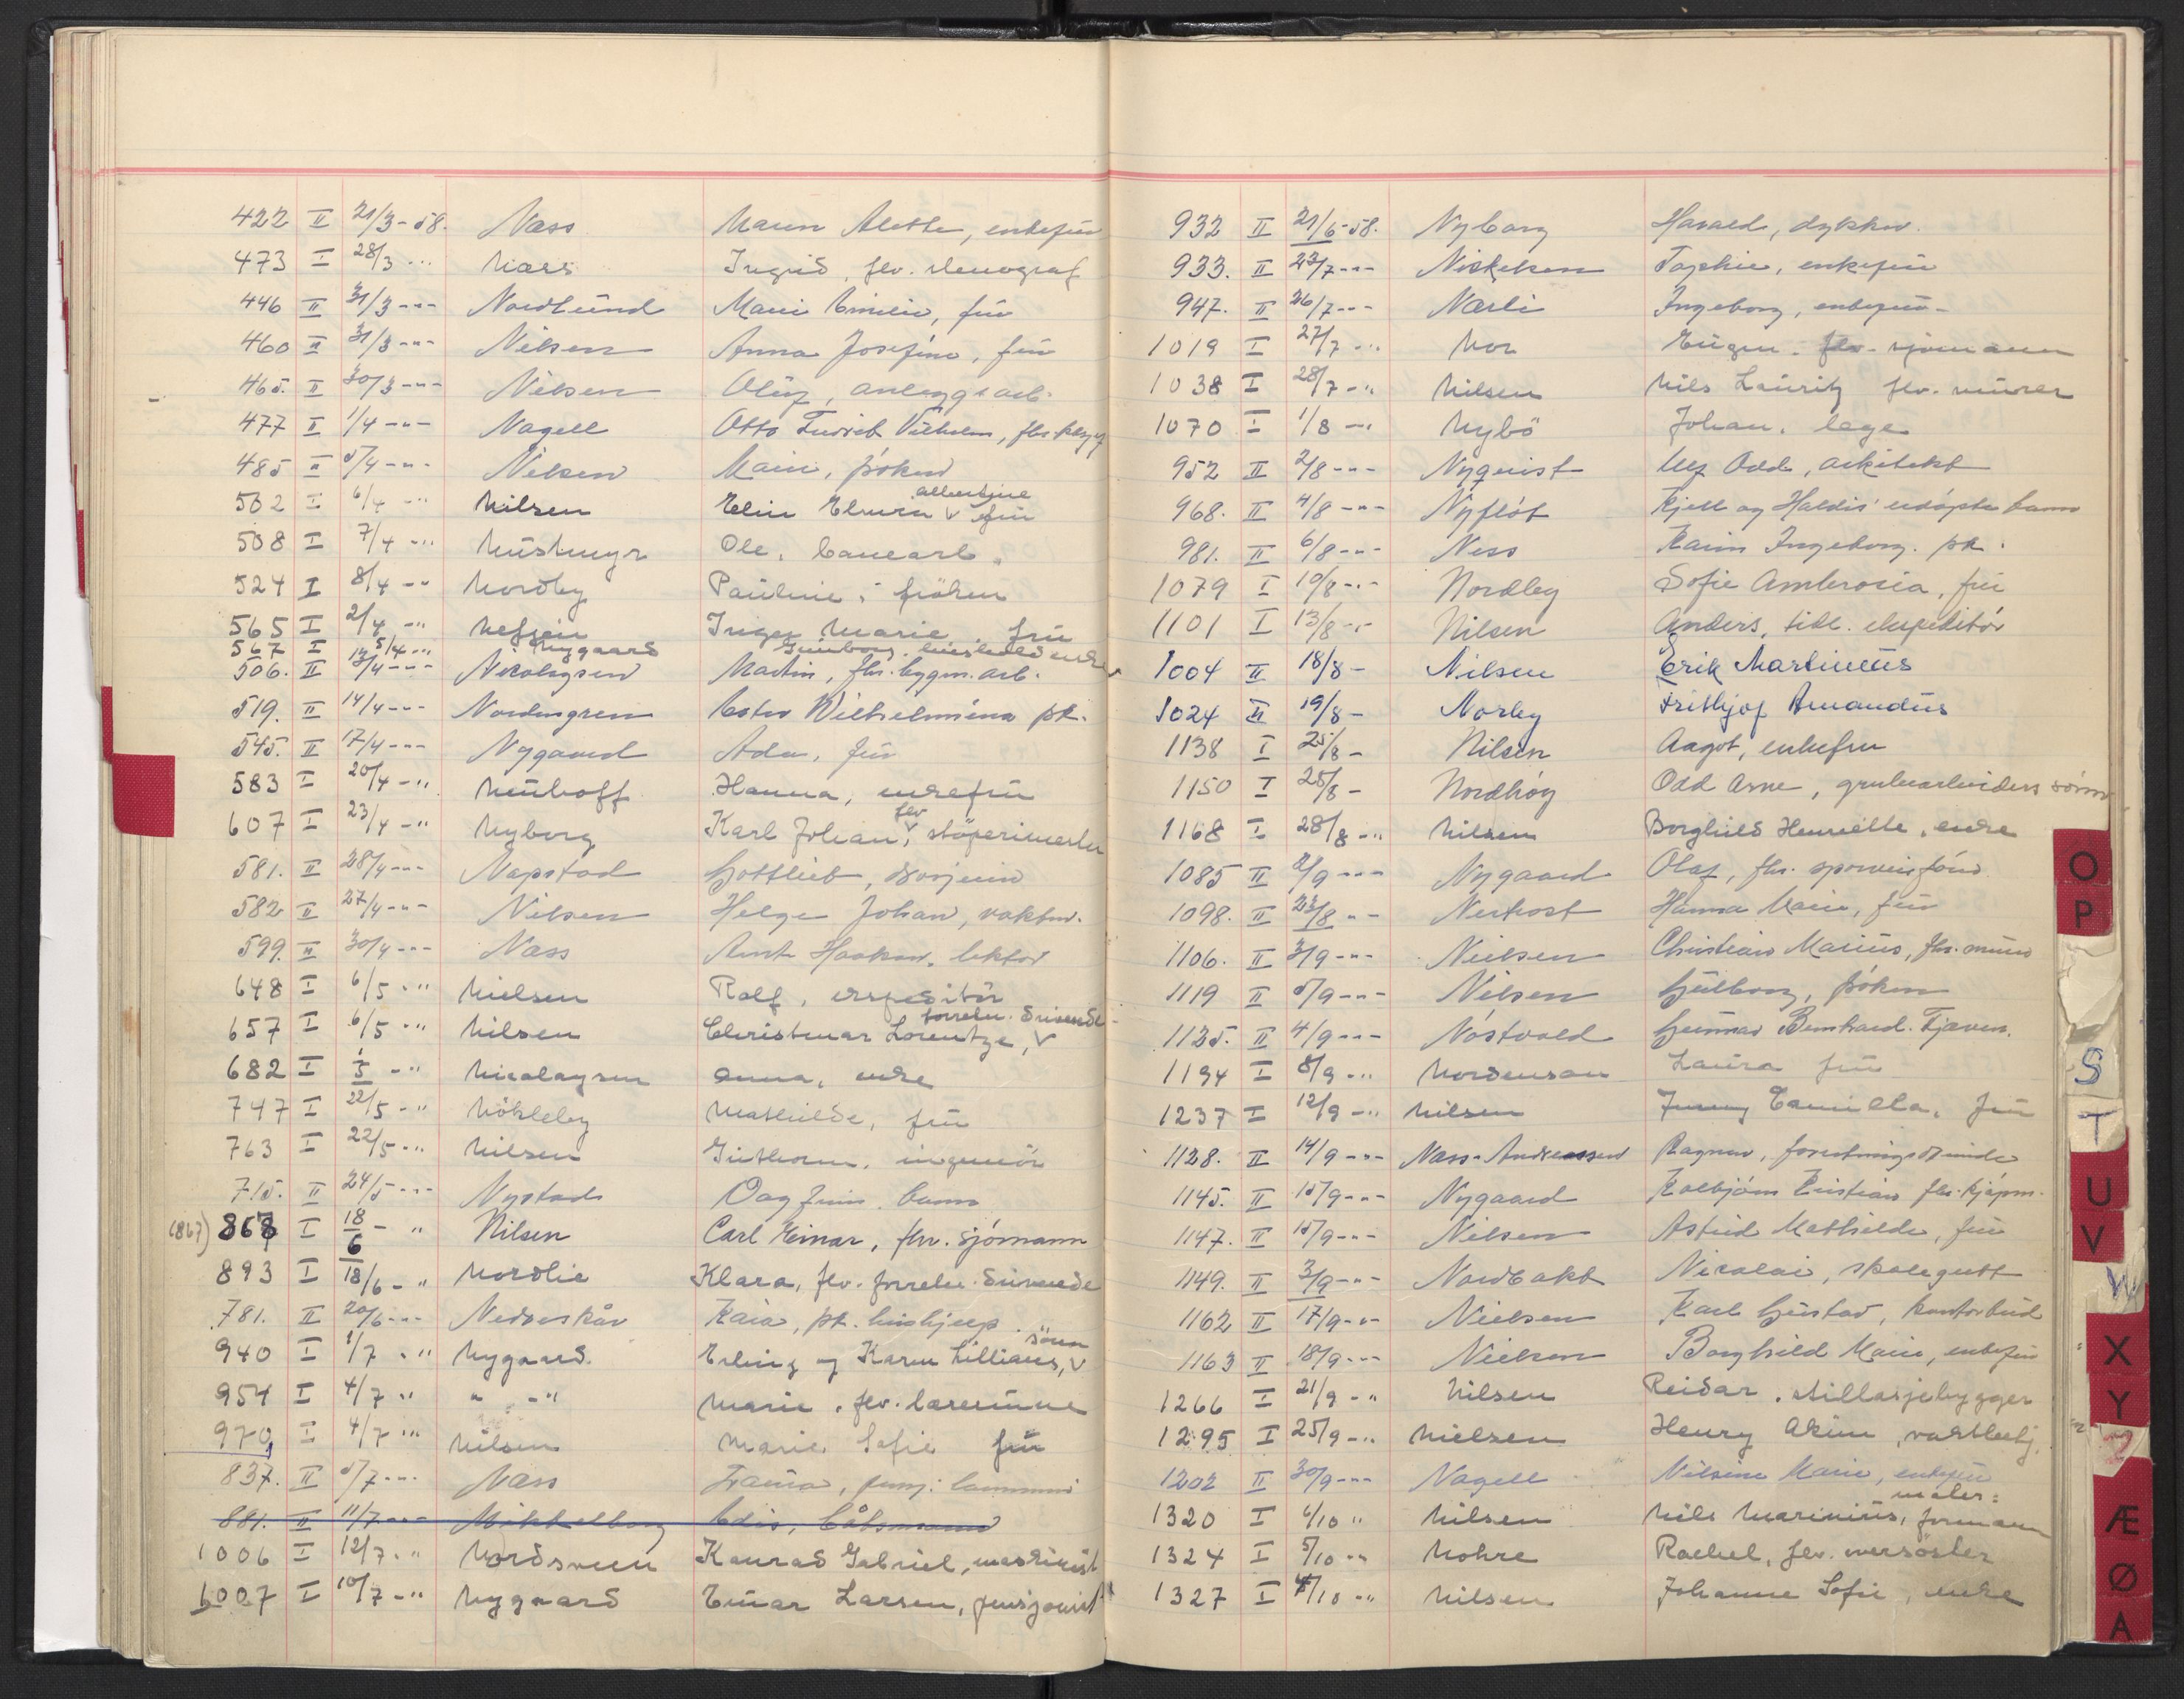 422 II 21/3-58. Næss Maren Alette, enkefrü
473 I 28/3 -"- Næss Ingrid, flv. stenograf
446 II 31/3 -"- Nordlünd Marie Emilie, frü
460 II 31/3 -"- Nilsen Anna Josefine, frü
465. II 30/3 -"- Nilsen Olüf, anleggsarb.
477 II 1/4 -"- Nagell Otto Vilhelm,
485 II 5/4 -"- Nilsen Marie, frøken
albertine
502 I 6/4 -"- Nilsen Elin v frü
508 I 7/4 -"- Ole,
524 I 8/4 -"- Nordby Paüline, frøken
565 I 2/4 -"- Inger Marie, frü
567 I 5/4 -"- Nygaard
506. II 13/4 -"- Nicolaysen Martin, fhv. bygn. arb.
519. II 14/4 -"- Nordengren Ester Wilhelmina pk.
545. II 17/4 -"- Nygaard Ada, frü
583 I 20/4 -"- Hanna, enkefrü
flv
607 I 23/4 -"- Nyborg Karl Johan, v støperimester
581. II 28/4 -"- Napstad Gottlieb,
582 II 27/4 -"- Nilsen Helge Johan, vaktm.
599. II 30/4 -"- Næss Arnt Haakon, lektor
648 I 6/5 -"- Nielsen Rolf, expeditör
forretn. drivende
657 I 6/5 -"- Nilsen Christmar Lorentze, v
682 I 1/5 -"- Nicolaysen Anna, enke
747 I 22/5 -"- Nökleby Mathilde, frü
763 I 22/5 -"- Nilsen Güthorm, ingeniör
715. II 24/5 -"- Nystad Dag Finn, barn
(867) 867 I 18/6 - " Nilsen Carl Einar, fhv. sjómann
893 I 18/6 - " Nordlie Klara, flv. forretn. drivende
781. II 20/6 -"- Nedreskår Kaia, pk. hüshjelp
sönn
940 I 1/7 -" Nygaard. Erling og Karen Lillians, v
954 I 4/7 " " -" Marie, flv. lærerinne
970 I 4/7 -"- Nilsen Marie Sofie frü
837. II 5/7 -"- Næss
881. II 11/7 -"- Mikkelborg Edis, Båtsmann
1006 I 12/7 -" Nordsveen Konrad Gabriel, maskinist
1007 I 10/7 -" Nygaard Einar Larsen, pensjonist
932 II 21/6-58. Nyborg Harald, dykker.
933. II 23/7 -"- Nickelsen Sophie, enkefrü
947. II 26/7 -"- Nærli Ingeborg, enkefrü-
1019 I 27/7 -"- Nor Eügen. flv. sjömann
1038 I 28/7 -" Nilsen Nils Laüritz flv. mürer
1070 I 1/8 -" Nybö Johan, lege
952 II 2/8 -"- Nyqüist Ulf Odd, arkitekt
968. II 4/8 -"- Nyflöt Kjell og Haldis' üdöpte barn
981. II 6/8 -"- Ness Karin Ingeborg. pk.
1079 I 10/8 -"- Nordby Sofie Ambrosia, frü
1101 I 13/8 -"- Nilsen Anders, tidl. ekspeditör
1004 II 18/8 - Nilsen Erik Martinüs
1024 II 19/8 - Norby Frithjof Amandüs
1138 I 25/8 - Nilsen Aagot, enkefru
1150 I 25/8 - Nordhöy Odd Arne, grubearbeiders sönn
1168 I 28/8 -" Nilsen Borghild Henriette, enke
1085 II 2/9 -"- Nygaard Olaf, fhv.
1098. II 23/8 -"- Hanna Marie, frü
1106. II 3/9 -"- Nielsen Christian Mariüs, fhv.
1119 II 5/9 -"- Nilsen Güllborg, frøken
1125. II 4/9 -"- Nöstvold Günnar Bernhard.
1194 I 8/9 -" Nordenson Laüra frü
1237 I 12/9 -" Nilsen Jenny Camilla, frü
1128. II 14/9 -"- Næss-Andreassen Ragnar,
1145. II 15/9 -"- Nygaard Kolbjörn Kristian fhv. kjöpm.
1147. II 15/9 -"- Nilsen Astrid Mathilde, frü
1149. II 3/9 -"- Nordbakk Nicolai, skolegutt
1162 II 17/9 -"- Nielsen Karl Güstav, kontorbüd
1163 II 18/9 -"- Nielsen Borghild Marie, enkefrü
1266 I 21/9 -" Nilsen Reidar, stillasjebygger
1295 I 25/9 -" Nielsen Henry
1202 II 30/9 -"- Nagell Nilsine Marie, enkefrü
maler=
1320 I 6/10 " Nilsen Nils Mariniüs, formann
1324 I 5/10 -" Nohre Rachel, flv. oversöster
1327 I 4/10 -" Nilsen Johanne Sofie, enke
O
P
S
T
U
V
W
X
Y
Æ
Ø
A